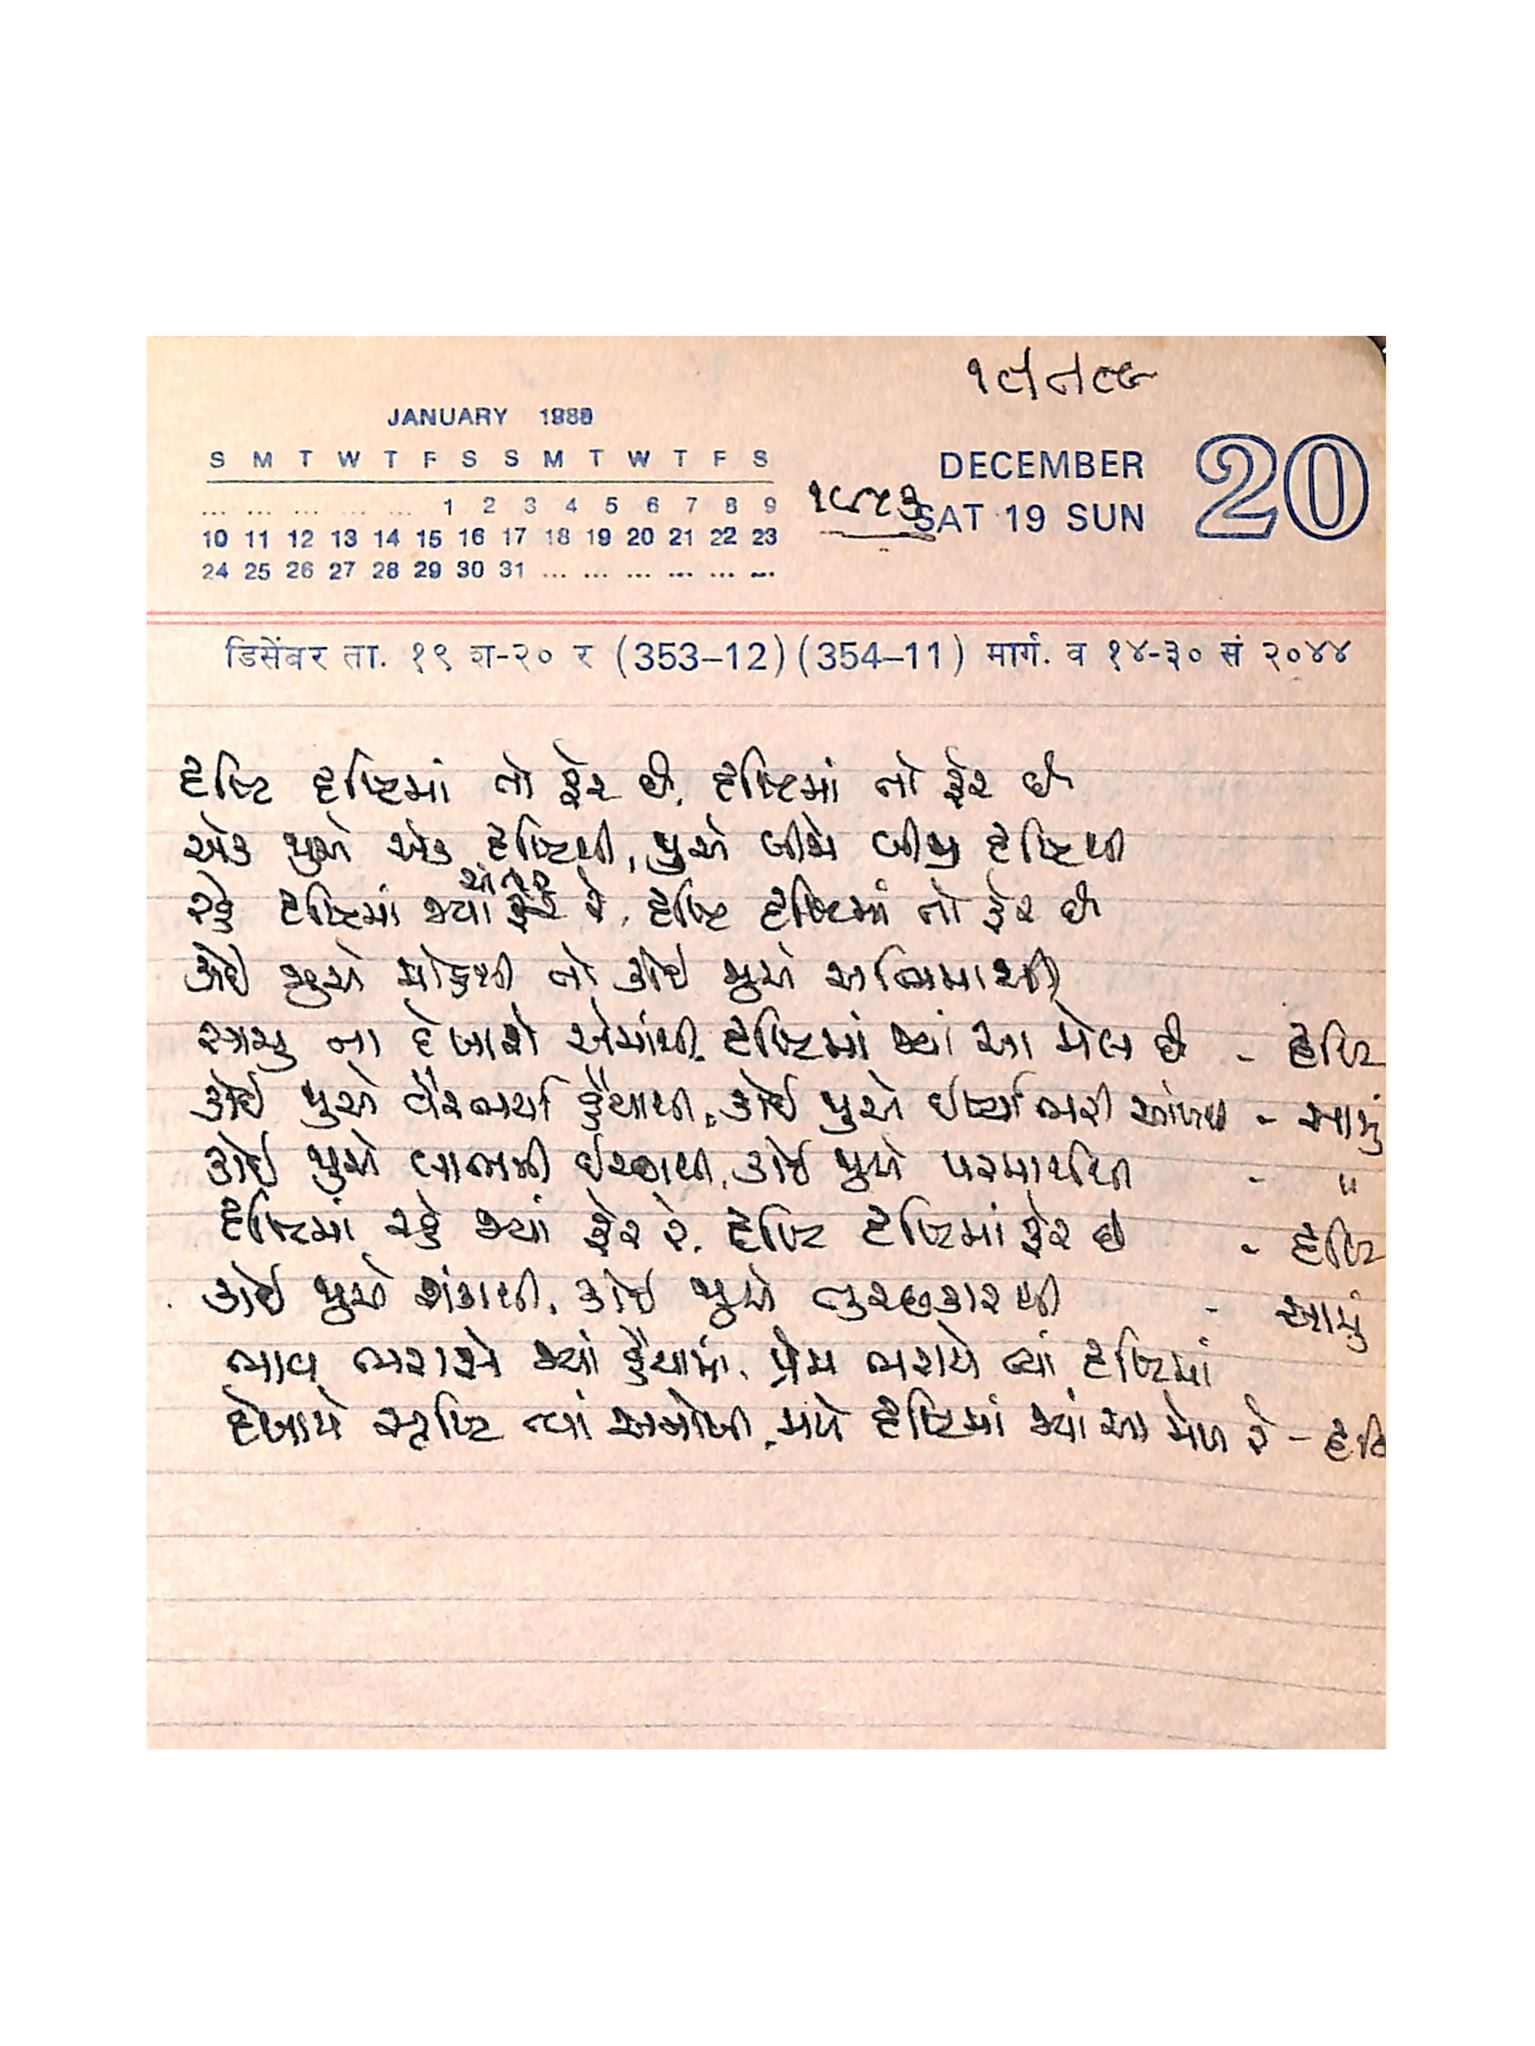 JANUARY 1988
S M T W T F S S M T W T F S
... ... ... ... ... 1 2 3 4 5 6 7 8 9
10 11 12 13 14 15 16 17 18 19 20 21 22 23
24 25 26 27 28 29 30 31 ... ... ... ... ... ...
DECEMBER
SAT 19 SUN
20
डिसेंबर ता. १९ श-२० र (353-12) (354-11) मार्ग. व १४-३० सं २०४४
દૃષ્ટિ દૃષ્ટિમાં તો ફેર છે, દૃષ્ટિમાં તો ફેર છે
એક જુએ એક દૃષ્ટિથી, જુએ બીજો બીજી દૃષ્ટિથી
રહે દૃષ્ટિમાં જ્યાં અંતર રે, દૃષ્ટિ દૃષ્ટિમાં તો ફેર છે
કોઈ જુએ મોહથી તો કોઈ જુએ અભિમાનથી
સાચું ના દેખાશે એમાંથી, દૃષ્ટિમાં જ્યાં આ મેલ છે - દૃષ્ટિ
કોઈ જુએ વૈરભર્યા હૈયાથી, કોઈ જુએ ઈર્ષ્યાભરી આંખથી - સાચું
કોઈ જુએ લાભની ઈચ્છાથી, કોઈ જુએ પરમાર્થથી - "
દૃષ્ટિમાં રહે જ્યાં ફેર રે, દૃષ્ટિ દૃષ્ટિમાં ફેર છે - દૃષ્ટિ
કોઈ જુએ શંકાથી, કોઈ જુએ તુચ્છકારથી - સાચું
ભાવ ભરાશે જ્યાં હૈયામાં, પ્રેમ ભરાયે ત્યાં દૃષ્ટિમાં
દેખાયે સૃષ્ટિ ત્યાં અનોખી, મળે દૃષ્ટિમાં જ્યાં આ મેળ રે - દૃષ્ટિ